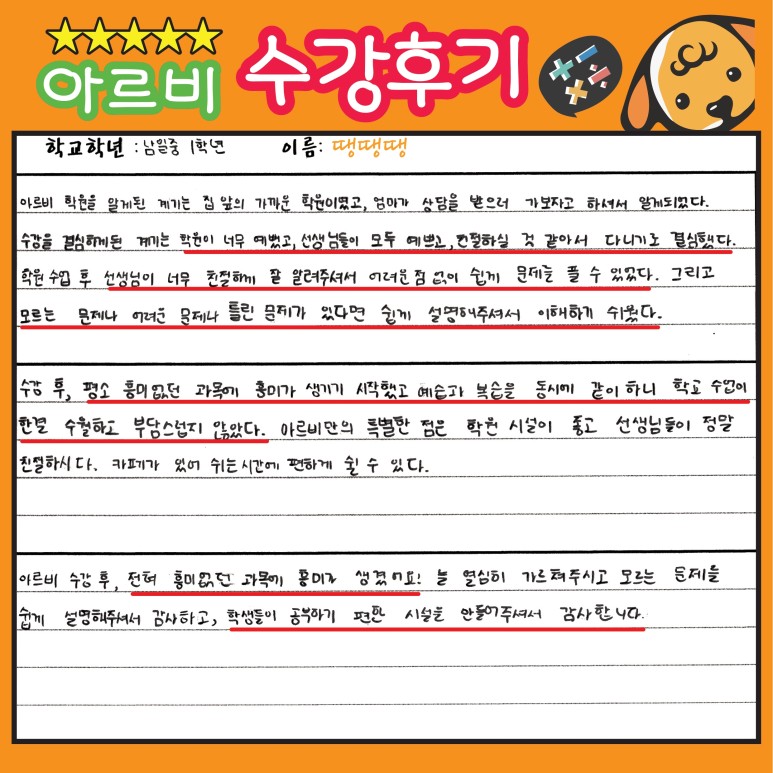 아르비 수강후기
학교학년 : 남일중 1학년 이름: 땡땡땡
아르비 학원을 알게된 계기는 집 앞의 가까운 학원이였고, 엄마가 상담을 받으러 가보자고 하셔서 알게되었다.
수강을 결심하게된 계기는 학원이 너무 예뻤고, 선생님들이 모두 예쁘고, 친절하실 것 같아서 다니기로 결심했다.
학원 수업 후 선생님이 너무 친절하게 잘 알려주셔서 어려운 점 없이 쉽게 문제를 풀 수 있었다. 그리고
모르는 문제나 어려운 문제나 틀린 문제가 있다면 쉽게 설명해주셔서 이해하기 쉬웠다.
수강 후, 평소 흥미없던 과목에 흥미가 생기기 시작했고 예습과 복습을 동시에 같이 하니 학교 수업이
한결 수월하고 부담스럽지 않았다. 아르비만의 특별한 점은 학원 시설이 좋고 선생님들이 정말
친절하시다. 카페가 있어 쉬는시간에 편하게 쉴 수 있다.
아르비 수강 후, 전혀 흥미없던 과목에 흥미가 생겼어요! 늘 열심히 가르쳐주시고 모르는 문제를
쉽게 설명해주셔서 감사하고, 학생들이 공부하기 편한 시설을 만들어주셔서 감사합니다.